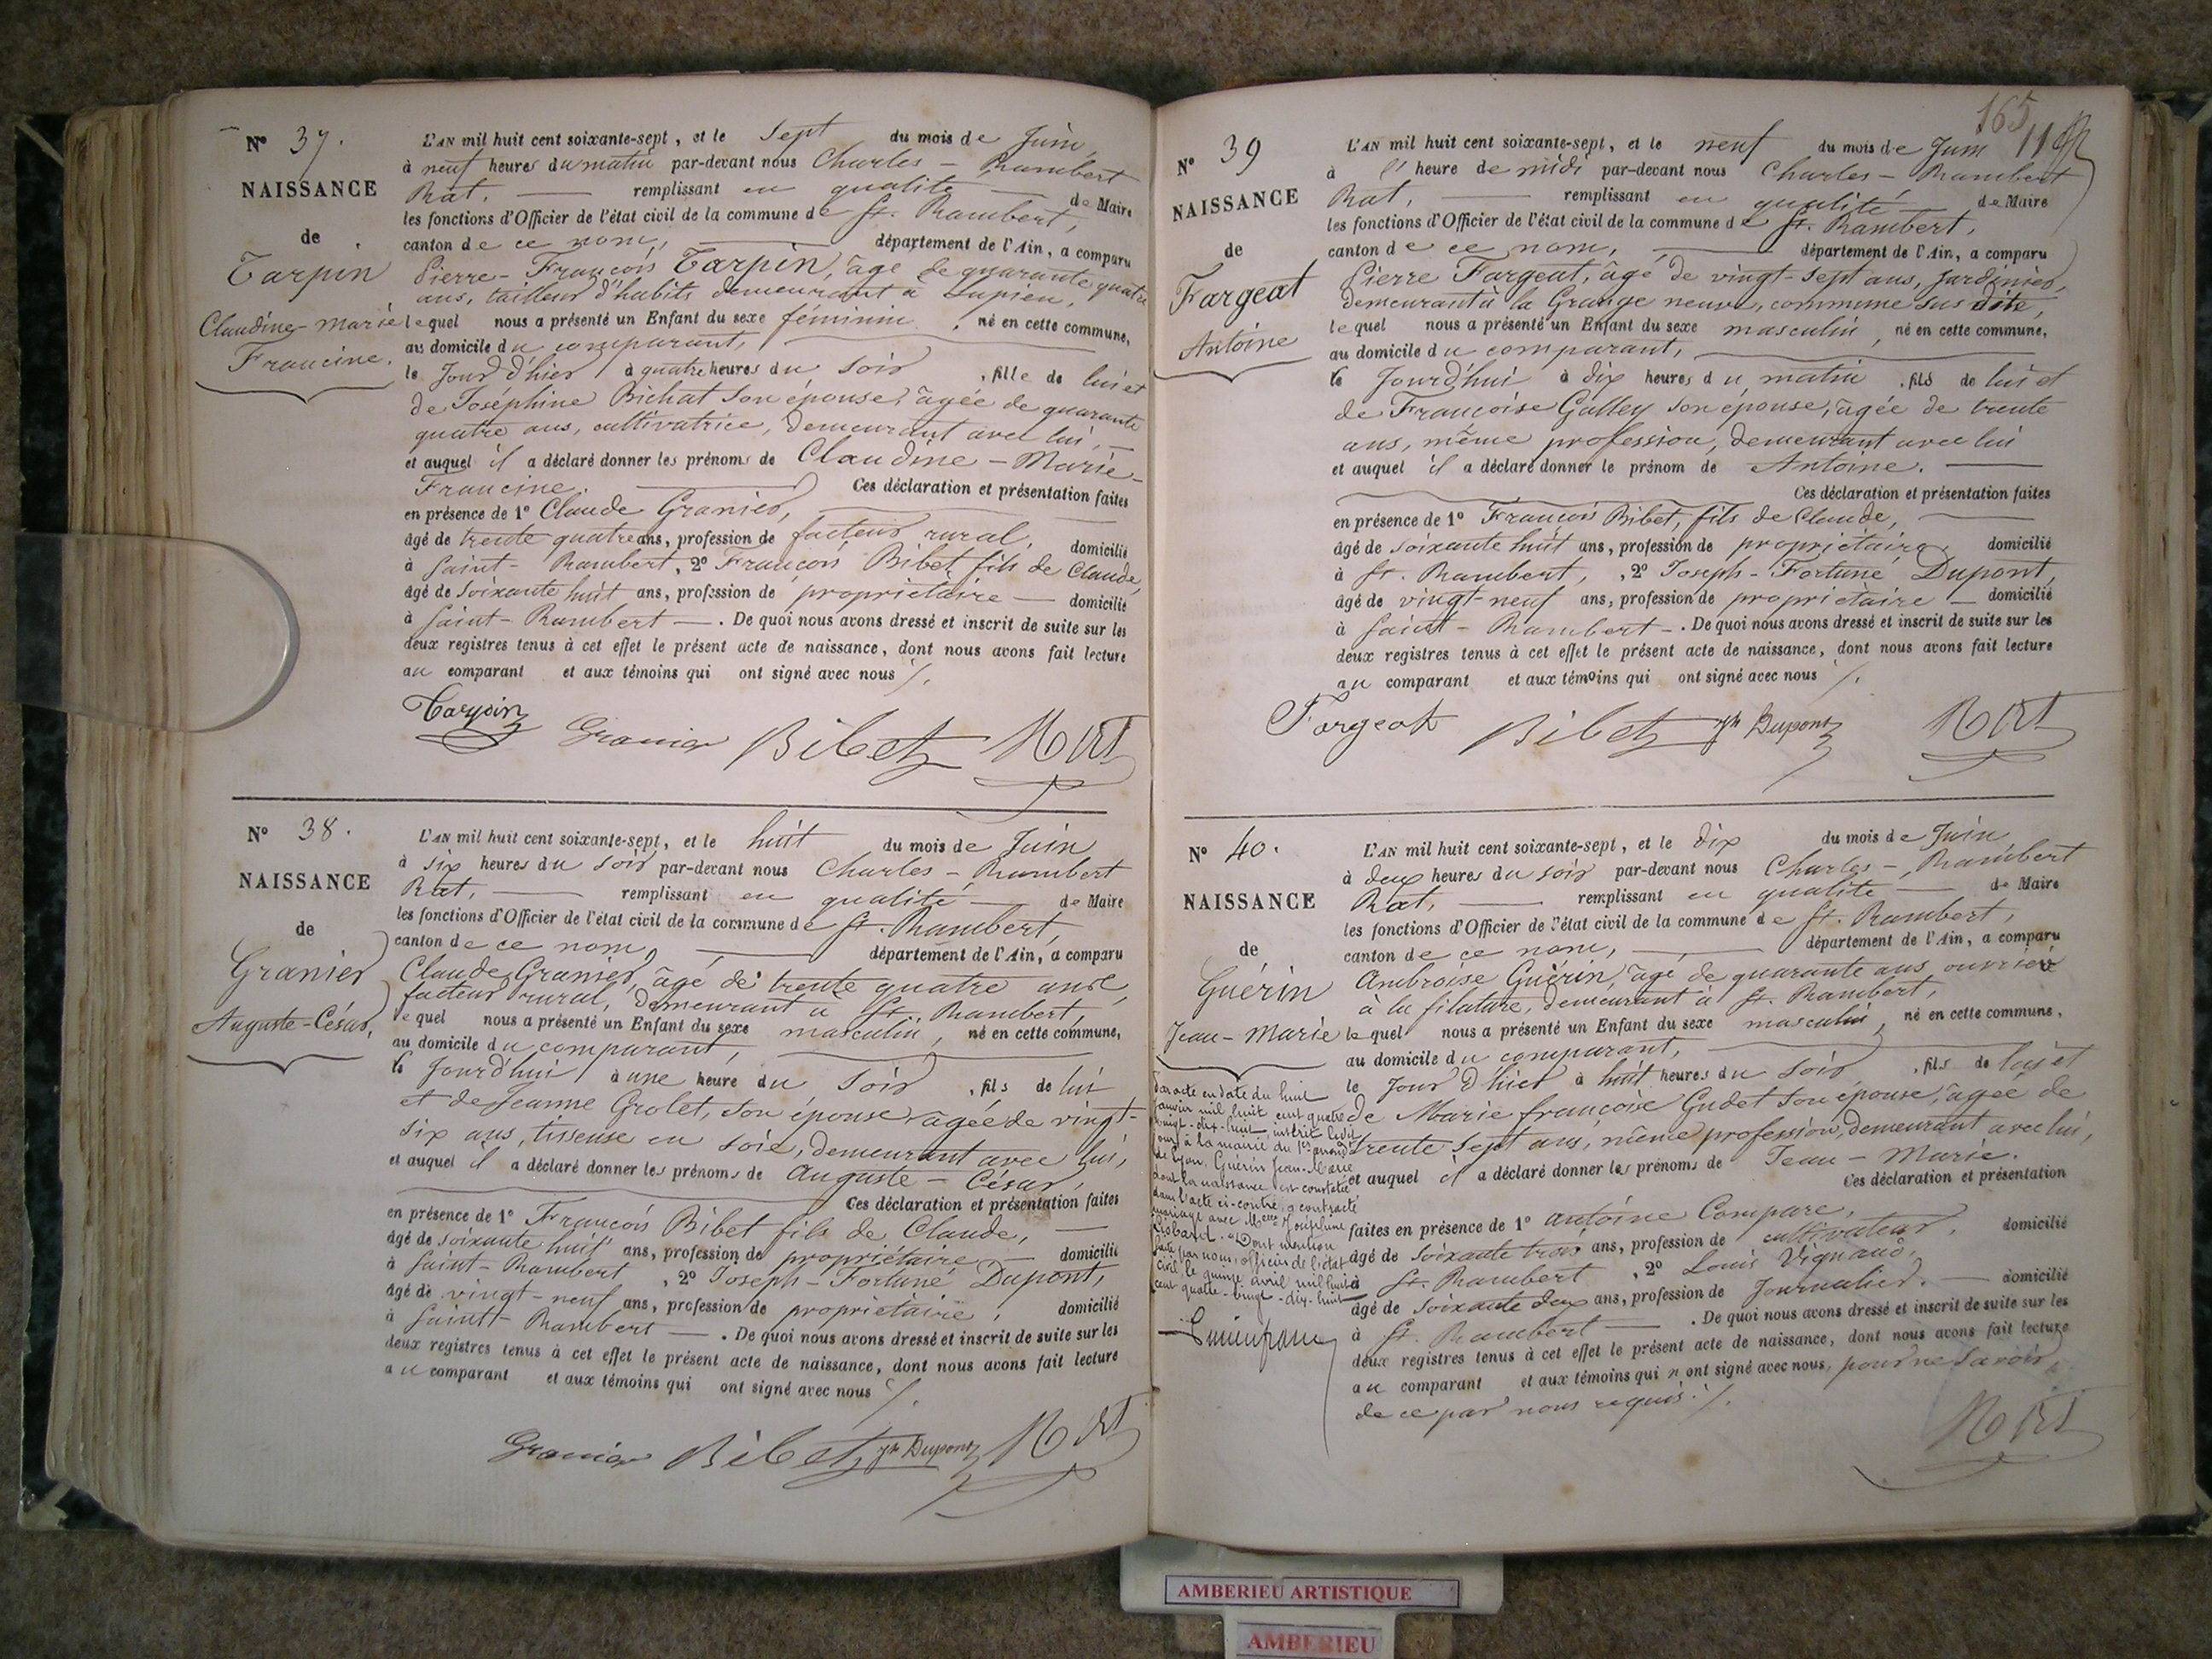 N° 37.
NAISSANCE
de
Tarpin
Claudine-Marie
Francine.
L'AN mil huit cent soixante-sept, et le sept du mois de Juin
à neuf heures du matin par-devant nous Charles-Rambert
Rat, remplissant en qualité de Maire
les fonctions d'Officier de l'état civil de la commune de St. Rambert,
canton de ce nom, département de l'Ain, a comparu
Pierre-François Tarpin, âgé de quarante quatre
ans, tailleur d'habits demeurant à Lupieu,
lequel nous a présenté un Enfant du sexe féminin, né en cette commune,
au domicile du comparant,
le Jour d'hier à quatre heures du soir, fille de lui et
de Joséphine Bichat son épouse, âgée de quarante
quatre ans, cultivatrice, demeurant avec lui,
et auquel il a déclaré donner les prénoms de Claudine-Marie-
Francine. Ces déclaration et présentation faites
en présence de 1° Claude Granier,
âgé de trente quatre ans, profession de facteur rural, domicilié
à Saint-Rambert, 2° François Bibet fils de Claude,
âgé de soixante huit ans, profession de propriétaire domicilié
à Saint-Rambert. De quoi nous avons dressé et inscrit de suite sur les
deux registres tenus à cet effet le présent acte de naissance, dont nous avons fait lecture
au comparant et aux témoins qui ont signé avec nous /.
Tarpin Granier Bibet Rat
N° 38.
NAISSANCE
de
Granier
Auguste-César,
L'AN mil huit cent soixante-sept, et le huit du mois de Juin
à six heures du soir par-devant nous Charles-Rambert
Rat, remplissant en qualité de Maire
les fonctions d'Officier de l'état civil de la commune de St. Rambert,
canton de ce nom, département de l'Ain, a comparu
Claude Granier, âgé de trente quatre ans,
facteur rural, demeurant à St. Rambert,
lequel nous a présenté un Enfant du sexe masculin, né en cette commune,
au domicile du comparant,
le Jourd'hui à une heure du soir, fils de lui
et de Jeanne Grolet, son épouse âgée de vingt-
six ans, tisseuse en soie, demeurant avec lui,
et auquel il a déclaré donner les prénoms de Auguste-César,
Ces déclaration et présentation faites
en présence de 1° François Bibet fils de Claude,
âgé de soixante huit ans, profession de propriétaire domicilié
à Saint-Rambert, 2° Joseph-Fortuné Dupont,
âgé de vingt-neuf ans, profession de propriétaire, domicilié
à Saint-Rambert. De quoi nous avons dressé et inscrit de suite sur les
deux registres tenus à cet effet le présent acte de naissance, dont nous avons fait lecture
au comparant et aux témoins qui ont signé avec nous /.
Granier Bibet jh Dupont Rat
165
N° 39
NAISSANCE
de
Fargeat
Antoine
L'AN mil huit cent soixante-sept, et le neuf du mois de Juin
à l' heure de midi par-devant nous Charles-Rambert
Rat, remplissant en qualité de Maire
les fonctions d'Officier de l'état civil de la commune de St. Rambert,
canton de ce nom, département de l'Ain, a comparu
Pierre Fargeat, âgé de vingt-sept ans, Jardinier,
demeurant à la Grange neuve, commune sus dite,
lequel nous a présenté un Enfant du sexe masculin, né en cette commune,
au domicile du comparant,
le Jourd'hui à dix heures du matin, fils de lui et
de Françoise Galley son épouse, âgée de trente
ans, même profession, demeurant avec lui
et auquel il a déclaré donner le prénom de Antoine.
Ces déclaration et présentation faites
en présence de 1° François Bibet, fils de Claude,
âgé de soixante huit ans, profession de propriétaire, domicilié
à St. Rambert, 2° Joseph-Fortuné Dupont,
âgé de vingt-neuf ans, profession de propriétaire domicilié
à Saint-Rambert. De quoi nous avons dressé et inscrit de suite sur les
deux registres tenus à cet effet le présent acte de naissance, dont nous avons fait lecture
au comparant et aux témoins qui ont signé avec nous /.
Fargeat Bibet jh Dupont Rat
N° 40.
NAISSANCE
de
Guérin
Jean-Marie
L'AN mil huit cent soixante-sept, et le dix du mois de Juin
à deux heures du soir par-devant nous Charles-Rambert
Rat, remplissant en qualité de Maire
les fonctions d'Officier de l'état civil de la commune de St. Rambert,
canton de ce nom, département de l'Ain, a comparu
Ambroise Guérin, âgé de quarante ans, ouvrier
à la filature, demeurant à St. Rambert,
lequel nous a présenté un Enfant du sexe masculin, né en cette commune,
au domicile du comparant,
le Jour d'hier à huit heures du soir, fils de lui et
de Marie françoise Gudet son épouse, âgée de
trente sept ans, même profession, demeurant avec lui,
et auquel il a déclaré donner les prénoms de Jean-Marie.
Ces déclaration et présentation
faites en présence de 1° Antoine Compare,
âgé de soixante trois ans, profession de cultivateur, domicilié
à St. Rambert, 2° Louis Vignaud,
âgé de soixante deux ans, profession de Journalier. domicilié
à St. Rambert. De quoi nous avons dressé et inscrit de suite sur les
deux registres tenus à cet effet le présent acte de naissance, dont nous avons fait lecture
au comparant et aux témoins qui n'ont signé avec nous, pour ne savoir,
de ce par nous requis /.
Rat
Par acte en date du huit
janvier mil huit cent quatre
vingt-dix-huit, inscrit ledit
jour à la mairie du 1er arrond
de Lyon, Guérin Jean-Marie
dont la naissance est constatée
dans l'acte ci-contre, a contracté
mariage avec Melle Joséphine
Dont mention
faite par nous, officier de l'état
civil, le quinze avril mil huit
cent quatre-vingt-dix-huit
AMBERIEU ARTISTIQUE
AMBERIEU